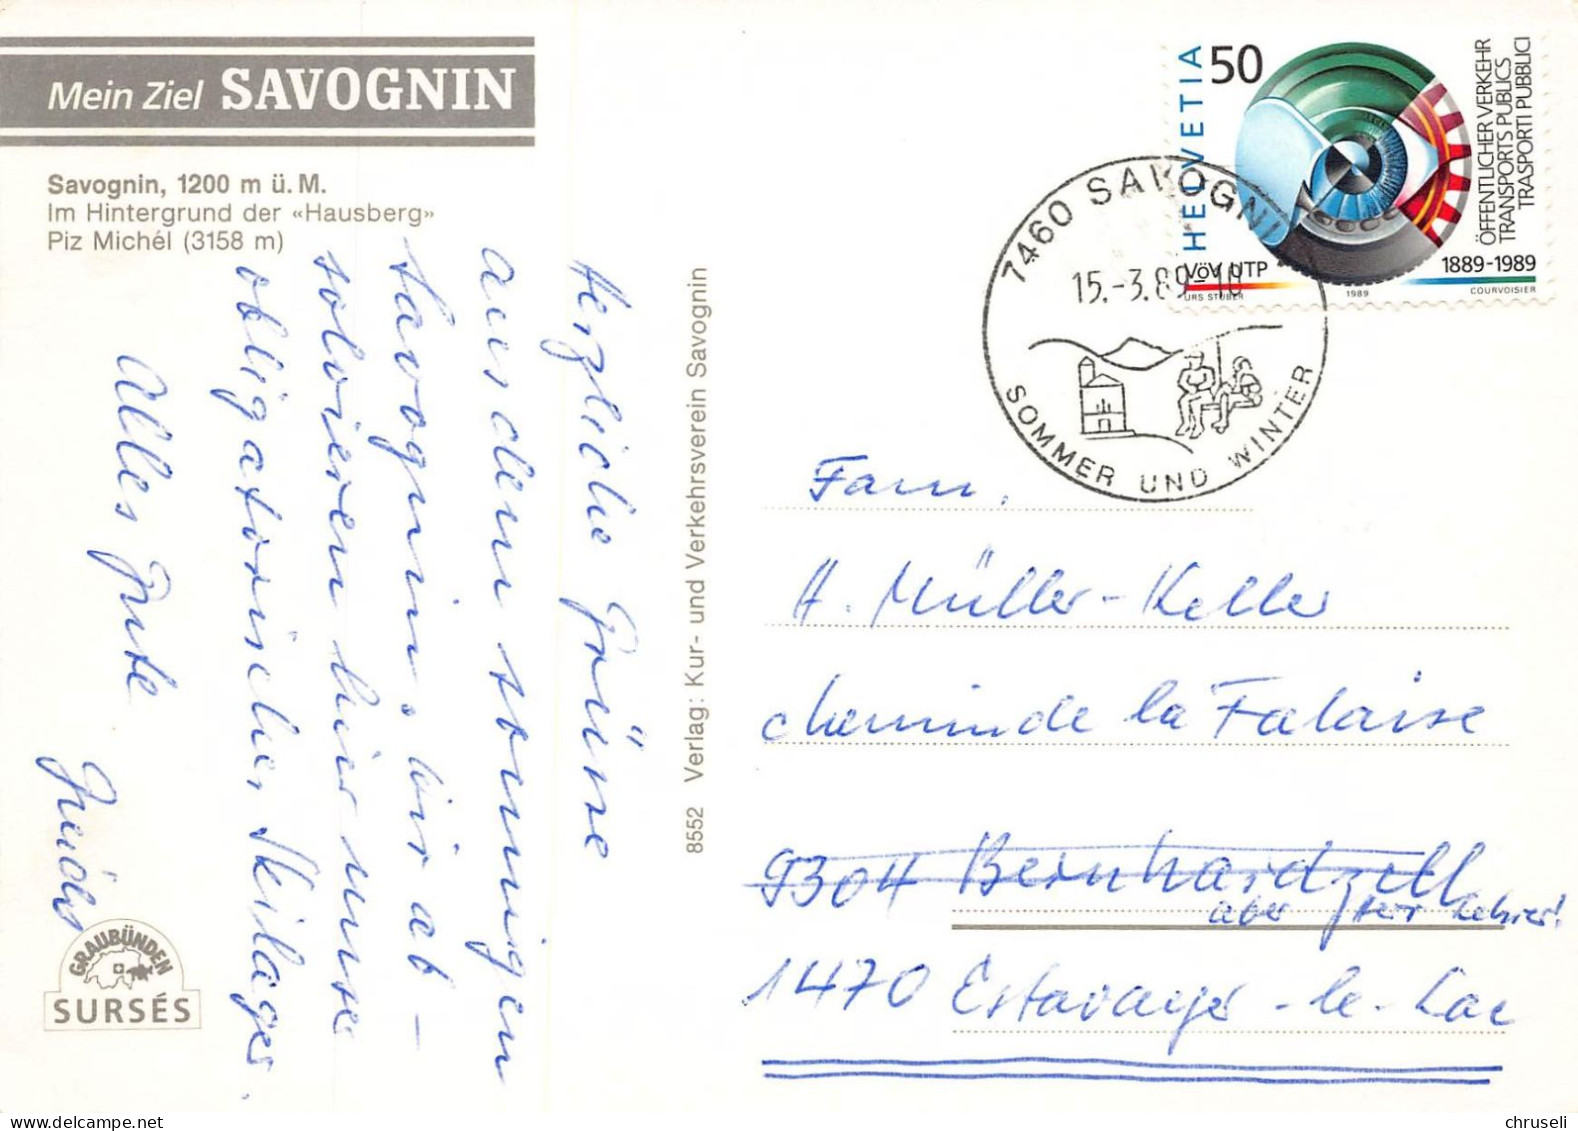 Mein Ziel SAVOGNIN
Savognin, 1200 m ü. M.
Im Hintergrund der «Hausberg»
Piz Michél (3158 m)
Herzliche Grüsse
aus dem sonnigen
Savognin. Wir ab-
solvieren hier unser
obligatorisches Skilager.
Alles Gute
GRAUBÜNDEN
SURSÉS
8552 Verlag: Kur- und Verkehrsverein Savognin
HELVETIA 50
ÖFFENTLICHER VERKEHR
TRANSPORTS PUBLICS
TRASPORTI PUBBLICI
VÖV UTP
1889-1989
URS STUBER
1989
COURVOISIER
7460 SAVOGNIN
15.-3.89-18
SOMMER UND WINTER
Fam.
H. Müller-Keller
chemin de la Falaise
9304 Bernhardzell
aber
1470 Estavayer-le-Lac
chruseli